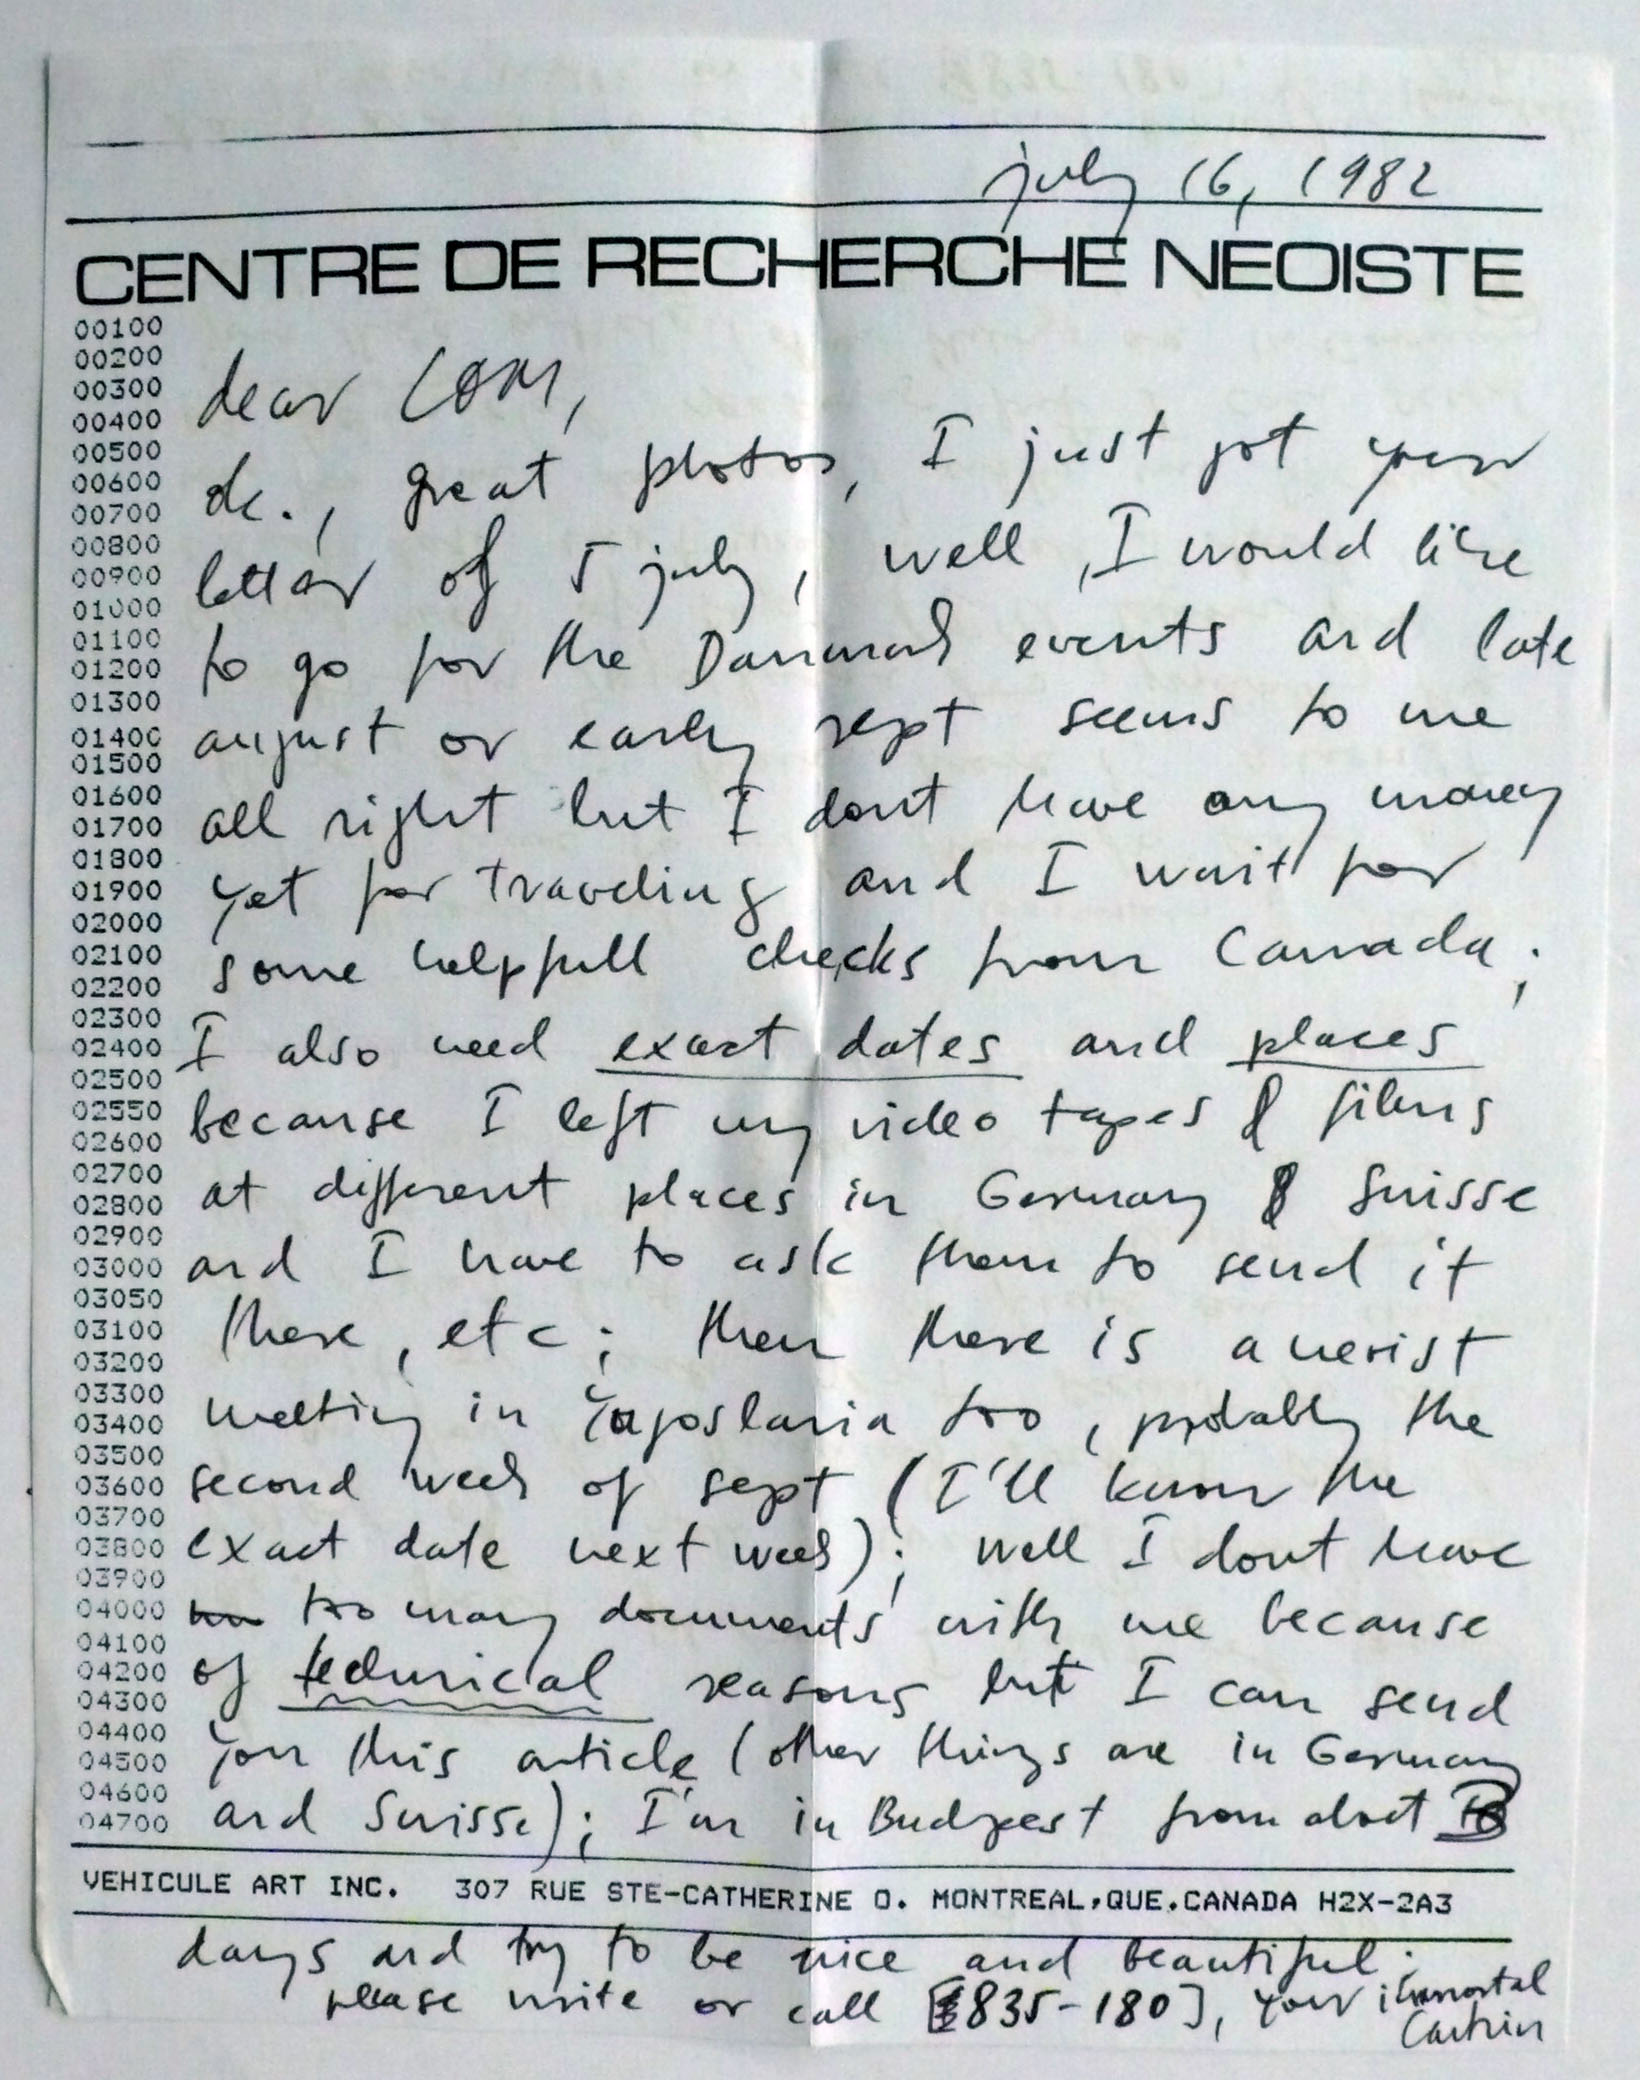 july 16, 1982
CENTRE DE RECHERCHE NEOISTE
00100
00200
00300
00400
00500
00600
00700
00800
00900
01000
01100
01200
01300
01400
01500
01600
01700
01800
01900
02000
02100
02200
02300
02400
02500
02550
02600
02700
02800
02900
03000
03050
03100
03200
03300
03400
03500
03600
03700
03800
03900
04000
04100
04200
04300
04400
04500
04600
04700
dear
great photos, I just got your
letter of 5 july, well, I would like
to go for the Danmark events and late
august or early sept seems to me
all right but I dont have any money
yet for traveling and I wait for
some helpfull checks from Canada;
I also need exact dates and places
because I left my video tapes & films
at different places in Germany & Suisse
and I have to ask them to send it
there, etc; then there is a neoist
meeting in Yugoslavia too, probably the
second week of sept (I'll know the
exact date next week); well I dont have
too many documents with me because
of technical reasons but I can send
you this article (other things are in Germany
and Suisse); I'm in Budpest from about
VEHICULE ART INC. 307 RUE STE-CATHERINE O. MONTREAL,QUE.CANADA H2X-2A3
days and try to be nice and beautiful.
please write or call [835-180], your immortal